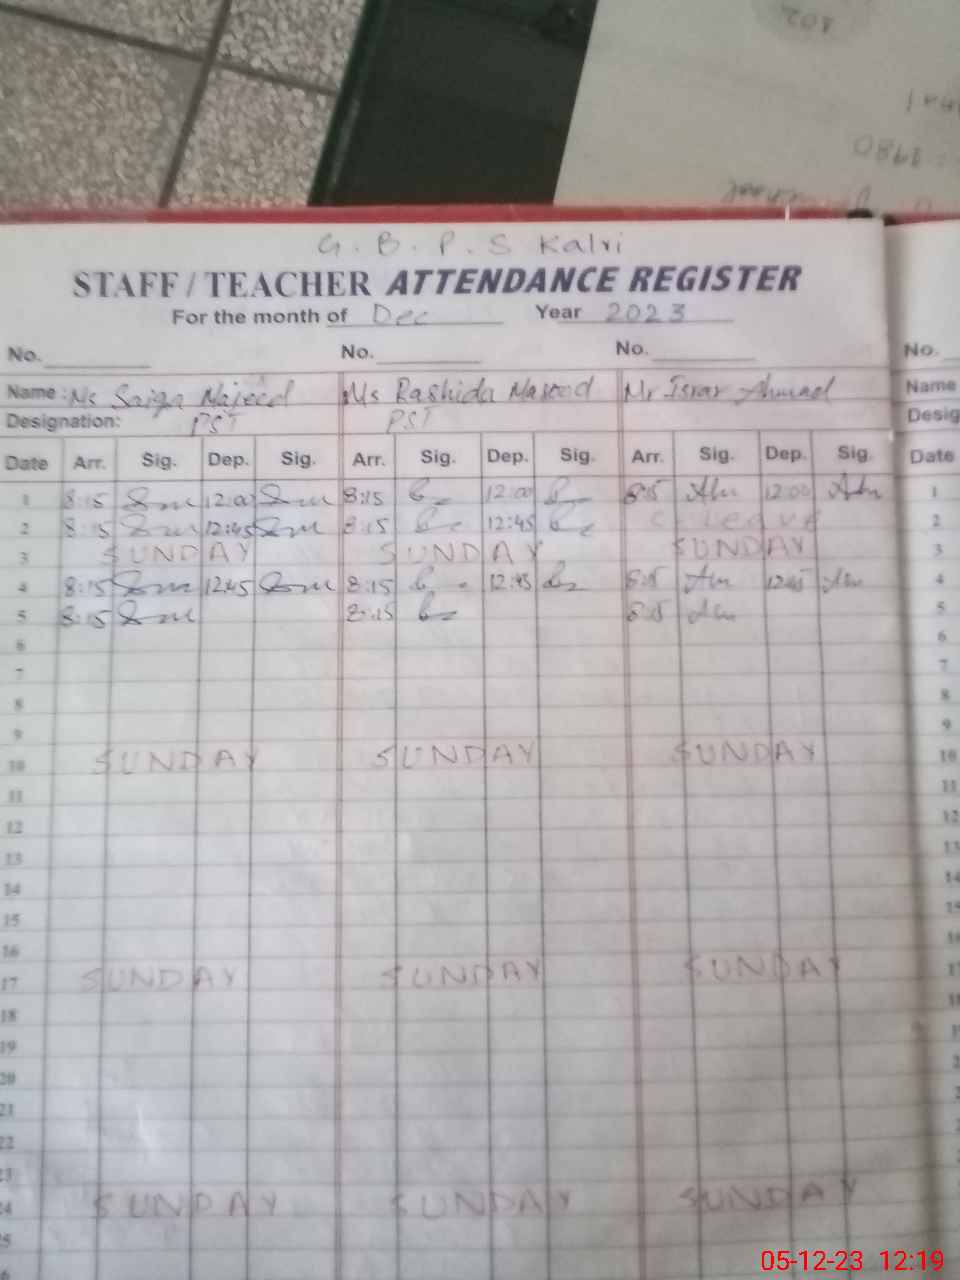 G. B. P. S Kalri
STAFF / TEACHER ATTENDANCE REGISTER
For the month of Dec Year 2023
No. No. No. No.
Name: Ms Saiqa Majeed Ms Rashida Masood Mr Israr Ahmad Name
Designation: PST PST Desig
Date Arr. Sig. Dep. Sig. Arr. Sig. Dep. Sig. Arr. Sig. Dep. Sig. Date
1 8:15 12:00 8:15 12:00 8:15 12:00 1
2 8:15 12:45 8:15 12:45 C. Leave 2
3 SUNDAY SUNDAY SUNDAY 3
4 8:15 12:45 8:15 12:45 8:15 12:45 4
5 8:15 8:15 8:15 5
6 6
7 7
8 8
9 9
10 SUNDAY SUNDAY SUNDAY 10
11 11
12 12
13 13
14 14
15 15
16 16
17 SUNDAY SUNDAY SUNDAY 17
18 18
19
20
21
22
23
24 SUNDAY SUNDAY SUNDAY
25
05-12-23 12:19